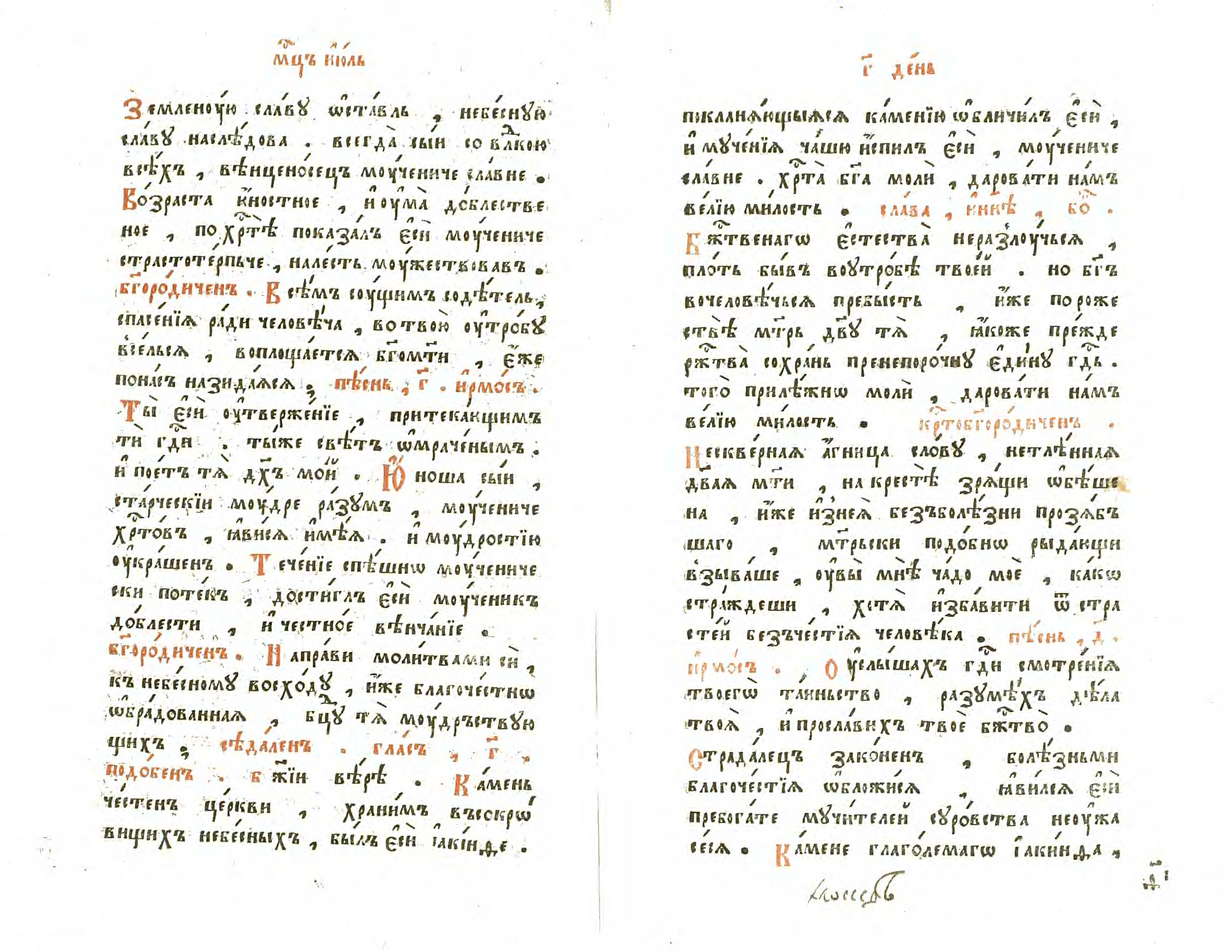 мⷭ҇цъ і҆ю́ль
Землено́ую сла́вꙋ ѡ҆ста́вль , небе́снꙋю
сла́вꙋ наслѣ́дова . всегда̀ сы́и со влⷣкою
всѣ́хъ , вѣнцено́сецъ моу́чениче сла́вне .
Во́зраста ю҆́ностное , и҆ оу҆ма̀ до́блестве
ное , по хрⷭ҇тѣ̀ показа́лъ є҆сѝ моу́чениче
страстоте́рпьче , на лесть моу́жествовавъ .
бг҃оро́диченъ . Всѣ́мъ соу́щимъ содѣ́тель ,
спасе́нїѧ ра́ди человѣ́ча , во твою̀ оу҆тро́бꙋ
все́льсѧ , воплоща́етсѧ бг҃ома́ти , є҆́же
по на́съ назида́ѧсѧ . пѣ́снь , г҃ . і҆рмо́съ .
Ты̀ є҆сѝ оу҆твержє́нїе , притека́ющимъ
ти̑ гдⷭ҇и . ты́ же свѣ́тъ ѡ҆мраче́нымъ .
и҆ пое́тъ тѧ̀ дх҃ъ мо́й . Ю҆́ноша сы́и ,
ста́рческїи моу́дре ра́зꙋмъ , моу́чениче
хрⷭ҇то́въ , ꙗ҆ви́сѧ и҆мѣ́ѧ . и҆ моу́дростїю
оу҆кра́шенъ . Тече́нїе спѣ́шнѡ моу́чениче
ски поте́къ , дости́глъ є҆сѝ моу́ченикъ
до́блести , и҆ честно́е вѣнча́нїе .
бг҃оро́диченъ . Напра́ви моли́твами сѝ ,
къ небе́сномꙋ восхо́дꙋ , и҆̀же благоче́стнѡ
ѡ҆бра́дованнаѧ , бцⷣꙋ тѧ̀ моу́дръствꙋю
щихъ . сѣда́ленъ . гла́съ , г҃ .
подо́бенъ . бж҃їи вѣ́рѣ . Ка́мень
че́стенъ це́ркви , храни́мъ въсокрѡ́
вищихъ небе́сныхъ , бы́лъ є҆сѝ і҆аки́нѳе .
г҃ де́нь
покланѧ́ющыѧсѧ ка́менїю ѡ҆бличи́лъ є҆сѝ ,
и҆ мꙋче́нїѧ ча́шю и҆спи́лъ є҆сѝ , моу́чениче
сла́вне . хрⷭ҇та̀ бг҃а молѝ , дарова́ти на́мъ
ве́лїю ми́лость . сла́ва , и҆ ны́нѣ , бо҃ .
Бжⷭ҇твенагѡ є҆стества̀ неразлоу́чьсѧ ,
пло́ть бы́въ воу҆тро́бѣ твое́й . но бг҃ъ
вочеловѣ́чьсѧ пребы́сть , и҆́же по роже
ствѣ̀ мт҃рь дв҃ꙋ тѧ̀ , ꙗ҆́коже пре́жде
ржⷭ҇тва̀ сохра́нь пренепоро́чнꙋ є҆ди́нꙋ гдⷭ҇ь .
того̀ приле́жнѡ молѝ , дарова́ти на́мъ
ве́лїю ми́лость . крⷭ҇тобг҃оро́диченъ .
Нескве́рнаѧ а҆́гница сло́вꙋ , нетлѣ́ннаѧ
дв҃аѧ мт҃и , на крестѣ̀ зрѧ́щи ѡ҆бѣ́ше
на , и҆́же и҆з̾неѧ̀ безъболѣ́зни прозѧ́бъ
шаго , мт҃рьски подо́бнѡ рыда́ющи
взыва́ше , оу҆вы̀ мнѣ̀ ча́до моѐ , ка́кѡ
стра́ждеши , хотѧ̀ и҆зба́вити ѿ стра
сте́й безъче́стїѧ человѣ́ка . пѣ́снь , д҃ .
і҆рмо́съ . Оу҆слы́шахъ гдⷭ҇и смотре́нїѧ
твоегѡ̀ та́иньство , разꙋмѣ́хъ дѣ́ла
твоѧ̀ , и҆ просла́вихъ твоѐ бжⷭ҇тво̀ .
Страда́лецъ зако́ненъ , болѣ́зньми
благоче́стїѧ ѡ҆бложи́сѧ , ꙗ҆ви́лсѧ є҆сѝ
пребога́те мꙋчи́телей сꙋро́вства неоу҆жа
се́сѧ . Ка́мене глаго́лемагѡ і҆аки́нѳа ,